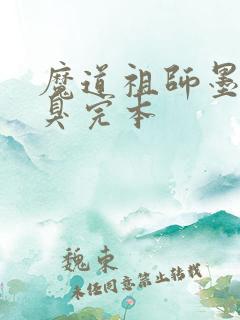 魔道祖师墨
臭完本
魏束
未经同意禁止转载